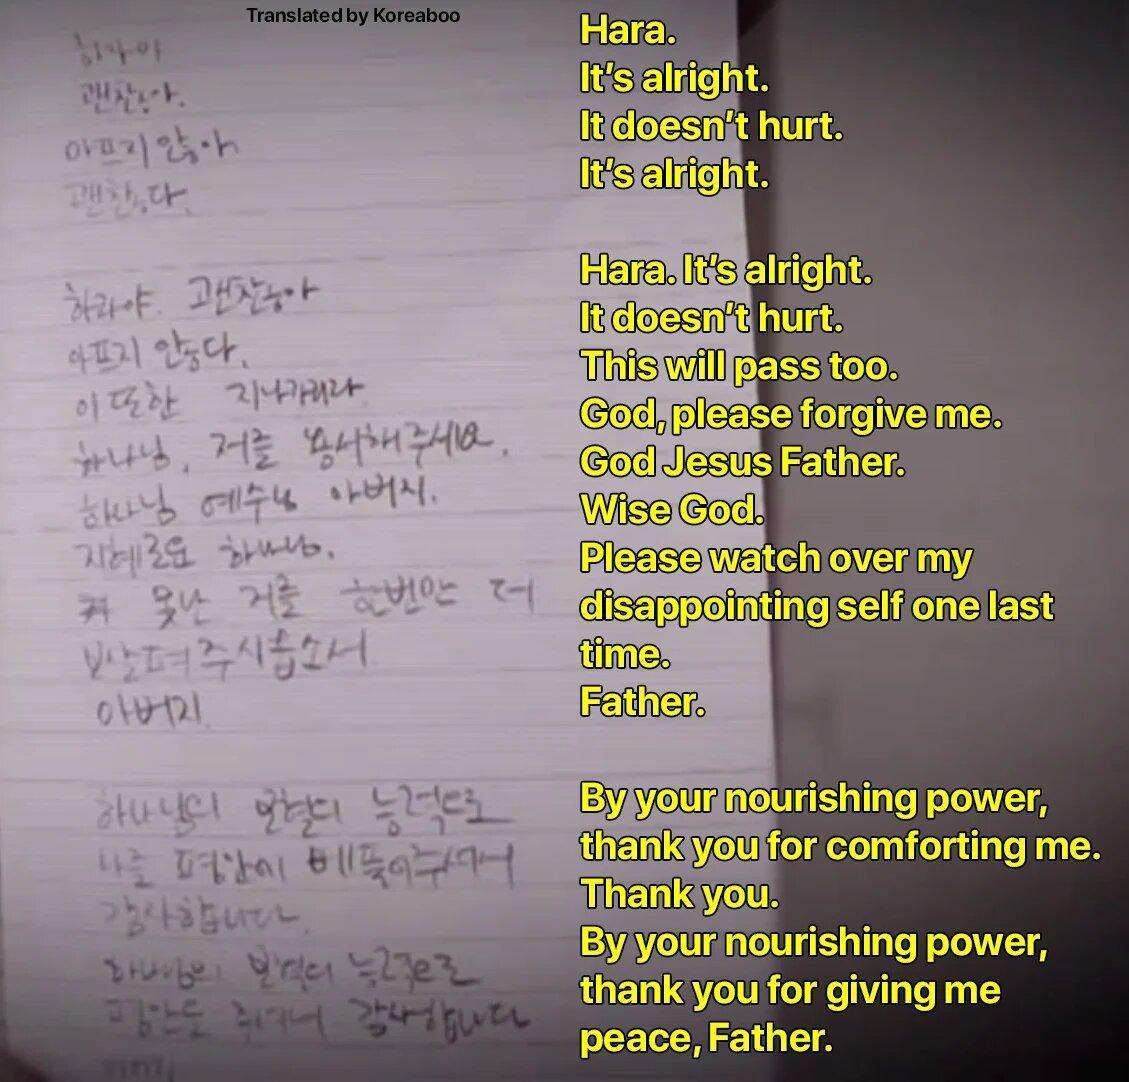 Translated by Koreaboo
하라야
괜찮아.
아프지 않아
괜찮다.
하라야. 괜찮아
아프지 않다.
이 또한 지나가리라
하나님, 저를 용서해주세요.
하나님 예수님 아버지.
지혜로운 하나님.
못난 저를 한번만 더
보살펴주시옵소서
아버지.
하나님의 능력으로
나를 평안히 베풀어주셔서
감사합니다.
하나님의 능력으로
평안을 주셔서 감사합니다
Hara.
It's alright.
It doesn't hurt.
It's alright.
Hara. It's alright.
It doesn't hurt.
This will pass too.
God, please forgive me.
God Jesus Father.
Wise God.
Please watch over my
disappointing self one last
time.
Father.
By your nourishing power,
thank you for comforting me.
Thank you.
By your nourishing power,
thank you for giving me
peace, Father.